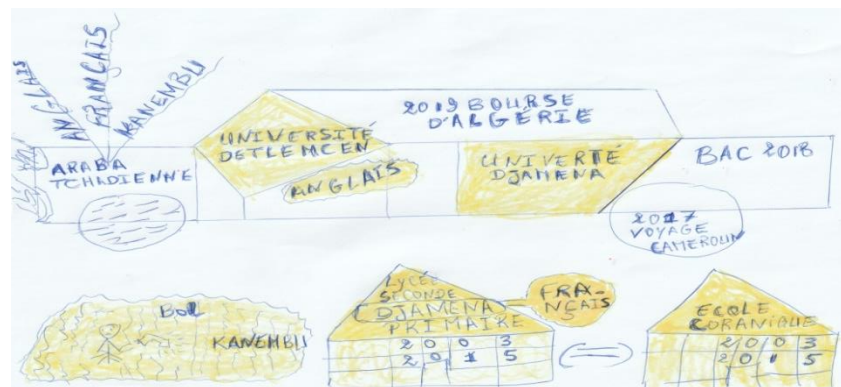 ANGLAIS
FRANÇAIS
KANEMBU
ARABA
TCHADIENNE
UNIVERSITÉ
DETLEMCEN
ANGLAIS
2019 BOURSE
D'ALGÉRIE
UNIVERTÉ
DJAMENA
BAC 2018
2017
VOYAGE
CAMEROUN
BOL
KANEMBU
LYCÉE
SECONDE
DJAMENA
PRIMAIRE
2003
2015
FRA-
NÇAIS
ECOLE
CORANIQUE
2003
2015